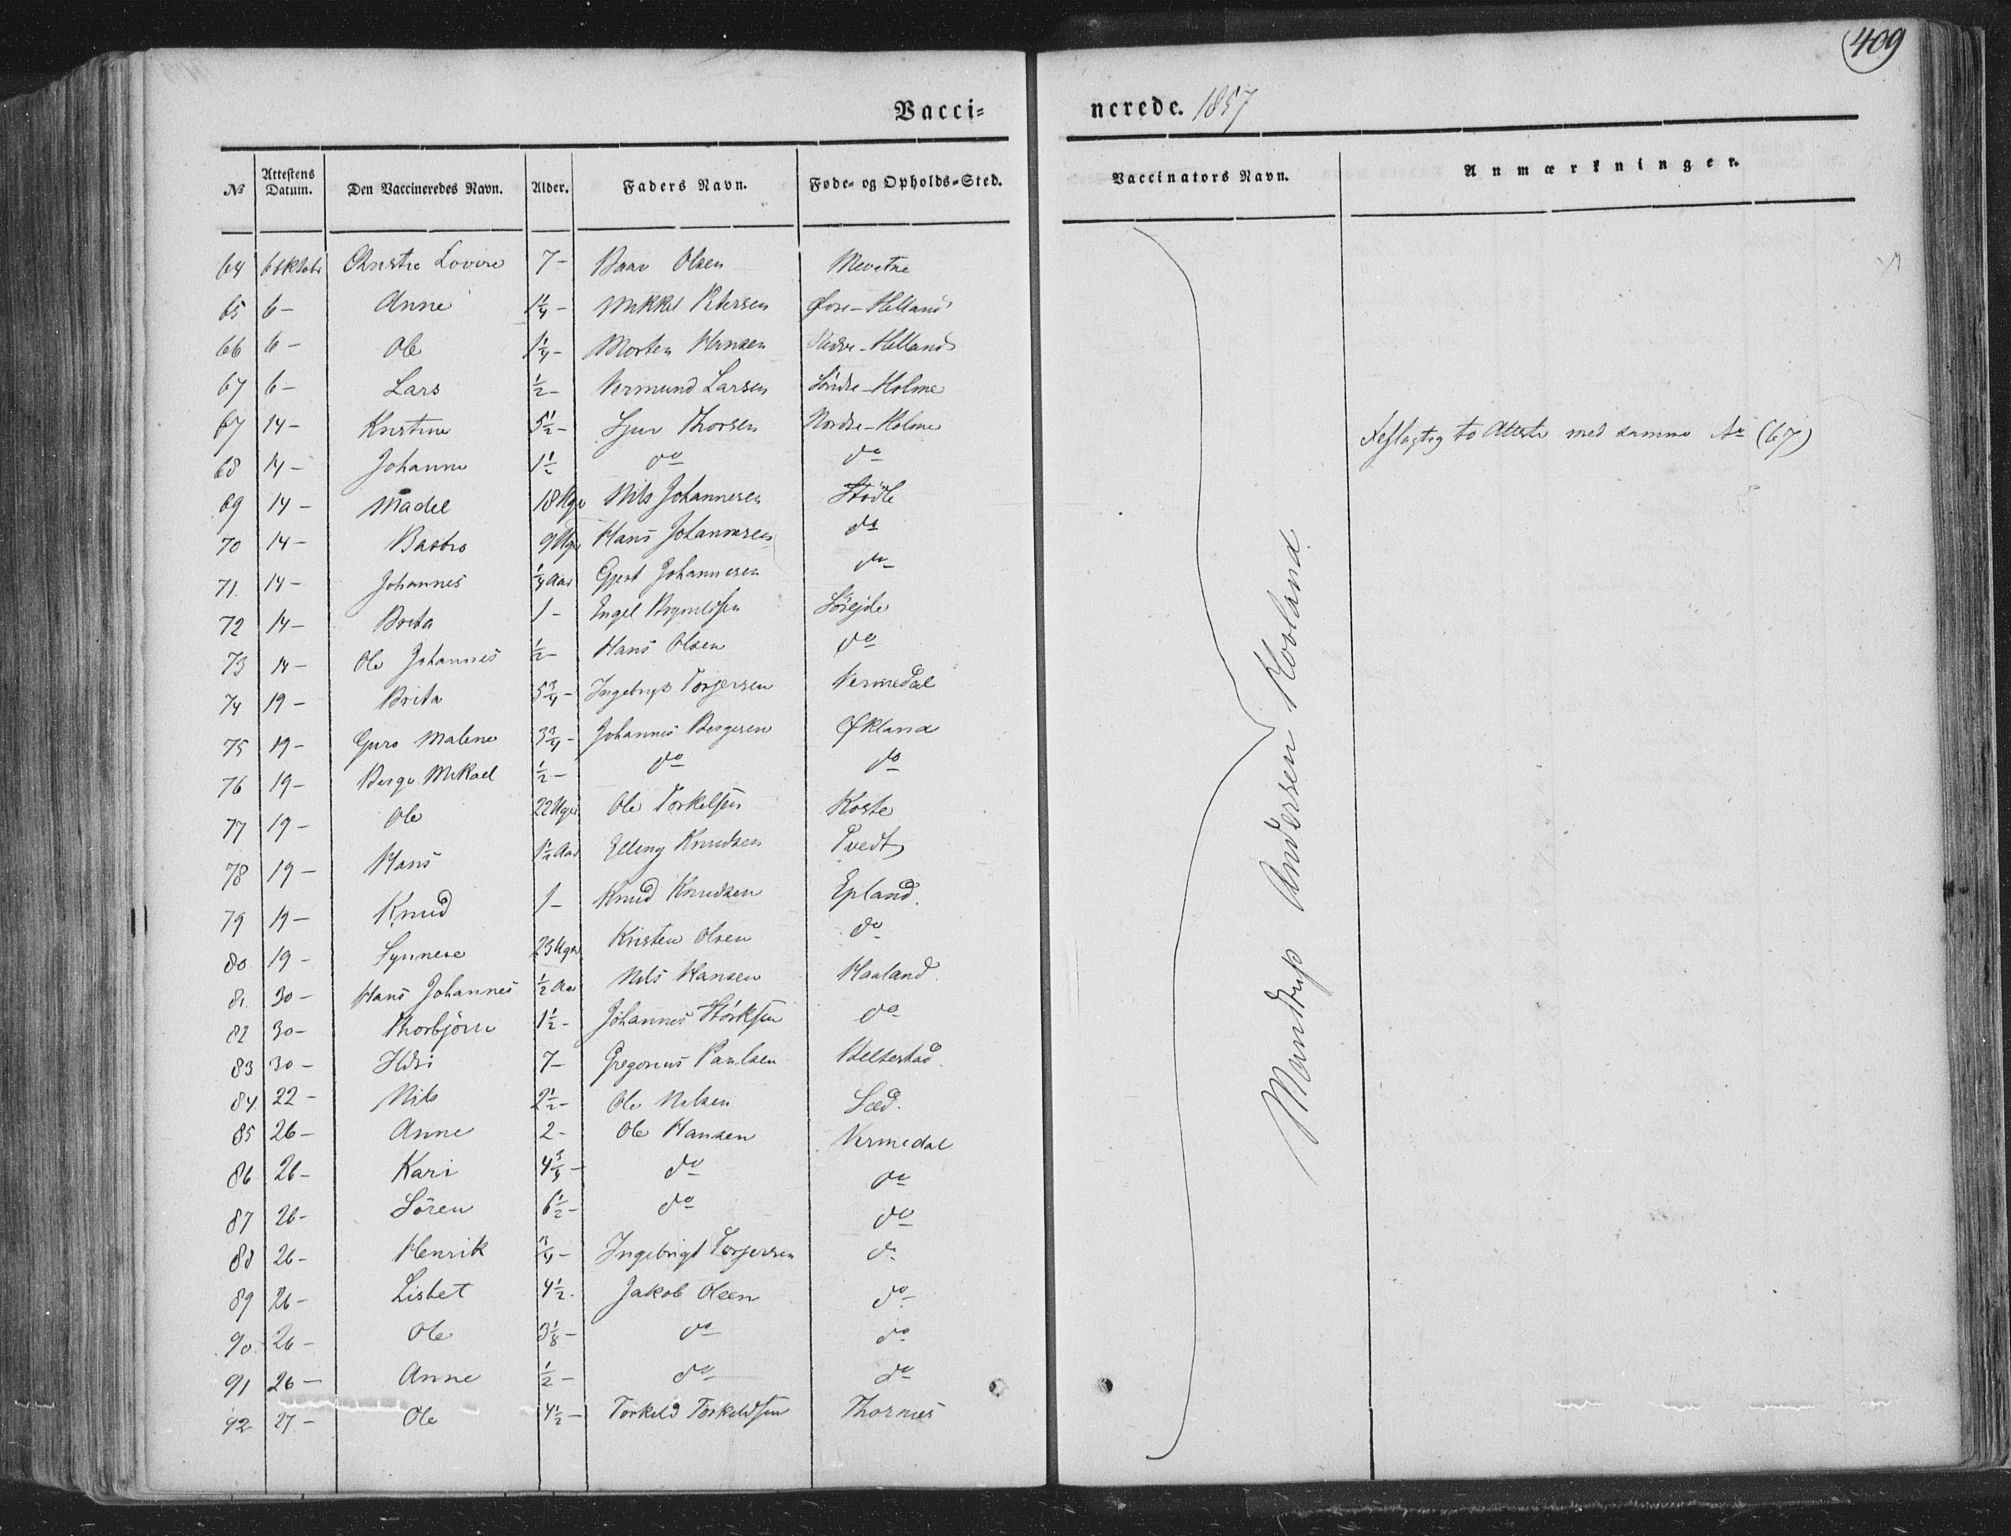 409
Vacci= nerede. 1857
No Attestens Datum. Den Vaccineredes Navn. Alder. Faders Navn. Føde= og Opholds=Sted. Vaccinators Navn. Anmærkninger.
64 6 Oktobr 7 - Baar Olsen
65 6 - Anne 1 1/4 - Mikkel Petersen Øvre-Helland
66 6 - Ole 1 1/4 - Morten Hansen Nedre-Helland
67 6 - Lars 1/2 - Vermund Larsen Söndre-Holme
67 14 - Kristine 5 1/2 - Sjur Thorsen Nordre-Holme to Atteste med samme No (67)
68 14 - Johanne 1 1/2 do do
69 14 - Madel 18 Uger Nils Johannesen Stödle
70 14 - 9 Uger Hans Johannesen do
71. 14 - Johannes 1/4 Aar Gjert Johannesen do
72 14 - Brita 1 - Engel
73 14 - Ole Johannes 1/2 - Hans Olsen do
74 19 - Brita 5 3/4 - Ingebrigt Torjersen Vermedal
75 19 - Guro Malene 3 3/4 - Johannes Bergesen Økland
76 19 - Berge Mikael 1/2 - do do
77 19 - Ole 22 Uger Ole Torkelsen Koste
78 19 - Hans 1 1/2 Aar Elling Knudsen Tvedt
79 19 - Knud 1 - Knud Knudsen Epland.
80 19 - Synneve 23 Uger Kristen Olsen do
81. 30 - Hans Johannes 1/2 Aar Nils Hansen Haaland.
82 30 - Thorbjörn 1 1/2 - Johannes Störksen do
83 30 - 7 - Gregorius Paulsen
84 22 - Nils 2 1/2 - Ole Nilsen Sæd.
85 26 - Anne 2 - Ole Hansen Vermedal
86 26 - Kari 4 3/4 - do do
87 26 - Sören 6 1/2 - do do
88 26 - Henrik 3/4 - Ingebrigt Torjersen do
89 26 - Lisbet 4 1/2 - Jakob Olsen do
90 26 - Ole 3 1/8 - do do
91 26 - Anne 1/2 - do do
92 27 - Ole 4 1/2 - Torkild Torkildsen Thornes
Mandrup Andersen Hovland